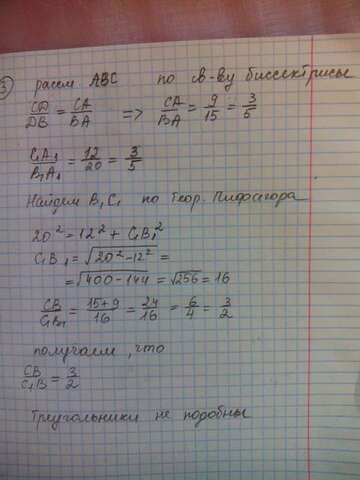 3) рассм ABC по св-ву биссектрисы
CD/DB = CA/BA => CA/BA = 9/15 = 3/5
C₁A₁/B₁A₁ = 12/20 = 3/5
Найдем B₁C₁ по теор. Пифагора
20² = 12² + C₁B₁²
C₁B₁ = √(20² - 12²) =
= √(400 - 144) = √256 = 16
CB/C₁B₁ = (15+9)/16 = 24/16 = 6/4 = 3/2
получаем, что
CB/C₁B = 3/2
Треугольники не подобны